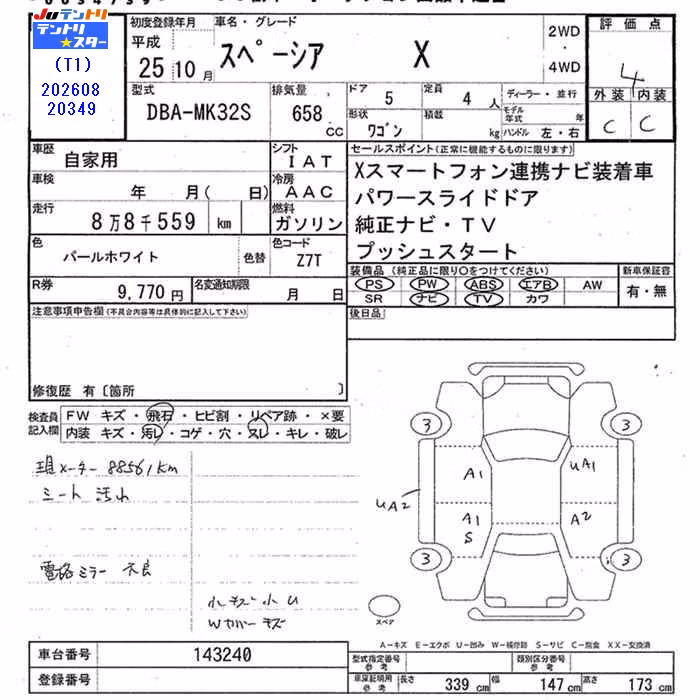 Juテントリ
テントリ
★スター
(T1)
202608
20349
初度登録年月
平成
25 10 月
車名・グレード
スペーシア X
2WD
・
4WD
評価点
4
外装 内装
C C
型式
DBA-MK32S
排気量
658
CC
ドア
5
定員
4 人
形状
ワゴン
積載
kg
ディーラー・並行
モデル年式 年
ハンドル 左・右
車歴
自家用
車検
年 月( 日)
走行
8万8千559 km
色
パールホワイト
色替
R券
9,770 円
名変通知期限
月 日
シフト
IAT
冷房
AAC
燃料
ガソリン
色コード
Z7T
セールスポイント(正常に機能するものに限ります)
Xスマートフォン連携ナビ装着車
パワースライドドア
純正ナビ・TV
プッシュスタート
装備品 (純正品に限り○をつけてください)
PS PW ABS エアB AW
SR ナビ TV カワ
新車保証書
有・無
後日品
注意事項申告欄(不具合内容等は具体的に記入して下さい)
修復歴 有〔箇所 〕
検査員
記入欄
FW キズ・飛石・ヒビ割・リペア跡・×要
内装 キズ・汚レ・コゲ・穴・スレ・キレ・破レ
現メーター 88561km
シート 汚れ
電格ミラー 不良
小キズ小U
Wカバーキズ
3
3
A1
UA1
UA2
A1
S
A2
3
3
スペア
A-キズ E-エクボ U-凹み W-補修跡 S-サビ C-腐食 XX-交換済
車台番号
143240
登録番号
型式指定番号
参考
類別区分番号
参考
車庫証明用
参考
長さ 339 cm 幅 147 cm 高さ 173 cm